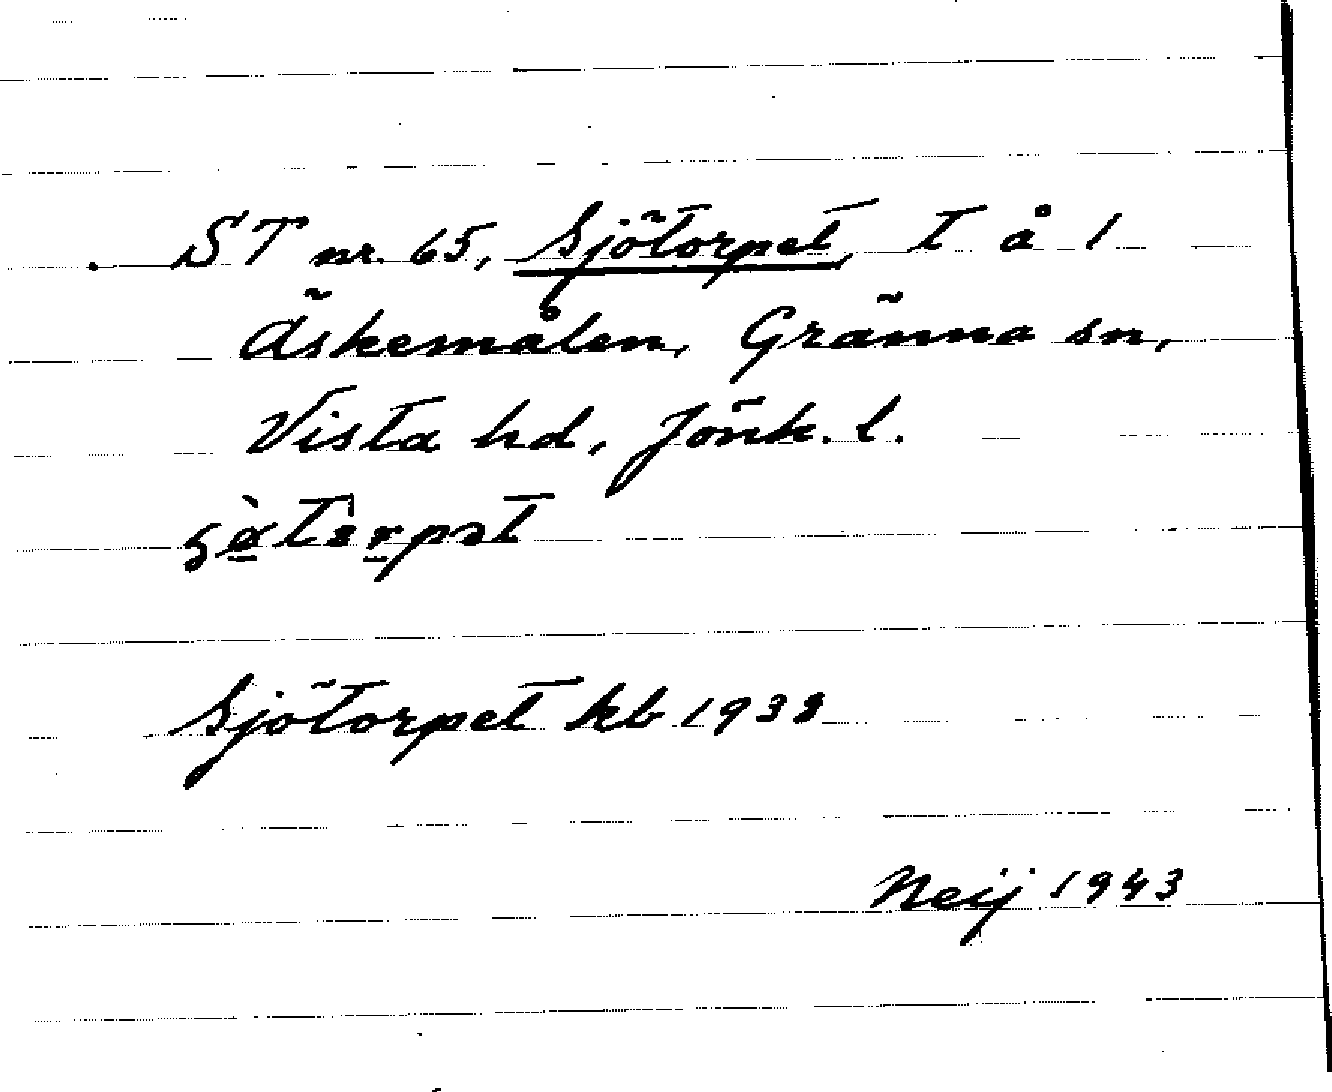 ST nr. 65, Sjötorpet, t å 1
Äskemålen, Gränna sn,
Vista hd, Jönk. l.
Sjötorpet kb 1938
Neij 1943